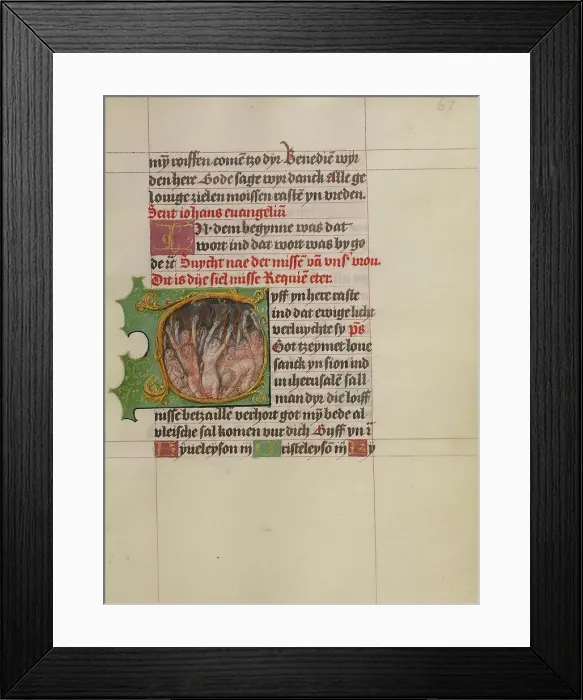 67
mȳ voiſſen comē tzo dyr Benediē wyr
den here Gode ſage wyr danck Alle ge
louige zielen moiſſen raſtē yn vreden.
Sent iohans euangeliū
IN dem begynne was dat
wort ind dat wort was by go
de ꝛc̄ Suycht nae der miſſē vā vnſʳ vrou.
Dit is dÿe ſiel miſſe Requiē eter.
Gyff yn here raſte
ind dat ewige licht
verluychte ſy p̄s
Got tzeymet loue
ſanck yn ſion ind
in iheruſalē ſall
man dyr die loiff
niſſe betzaille verhort got mȳ bede al
vleiſche ſal komen vur dich Gyff yn ꝛ̄
Kyrieleyſon iij Criſteleyſō iij Ky